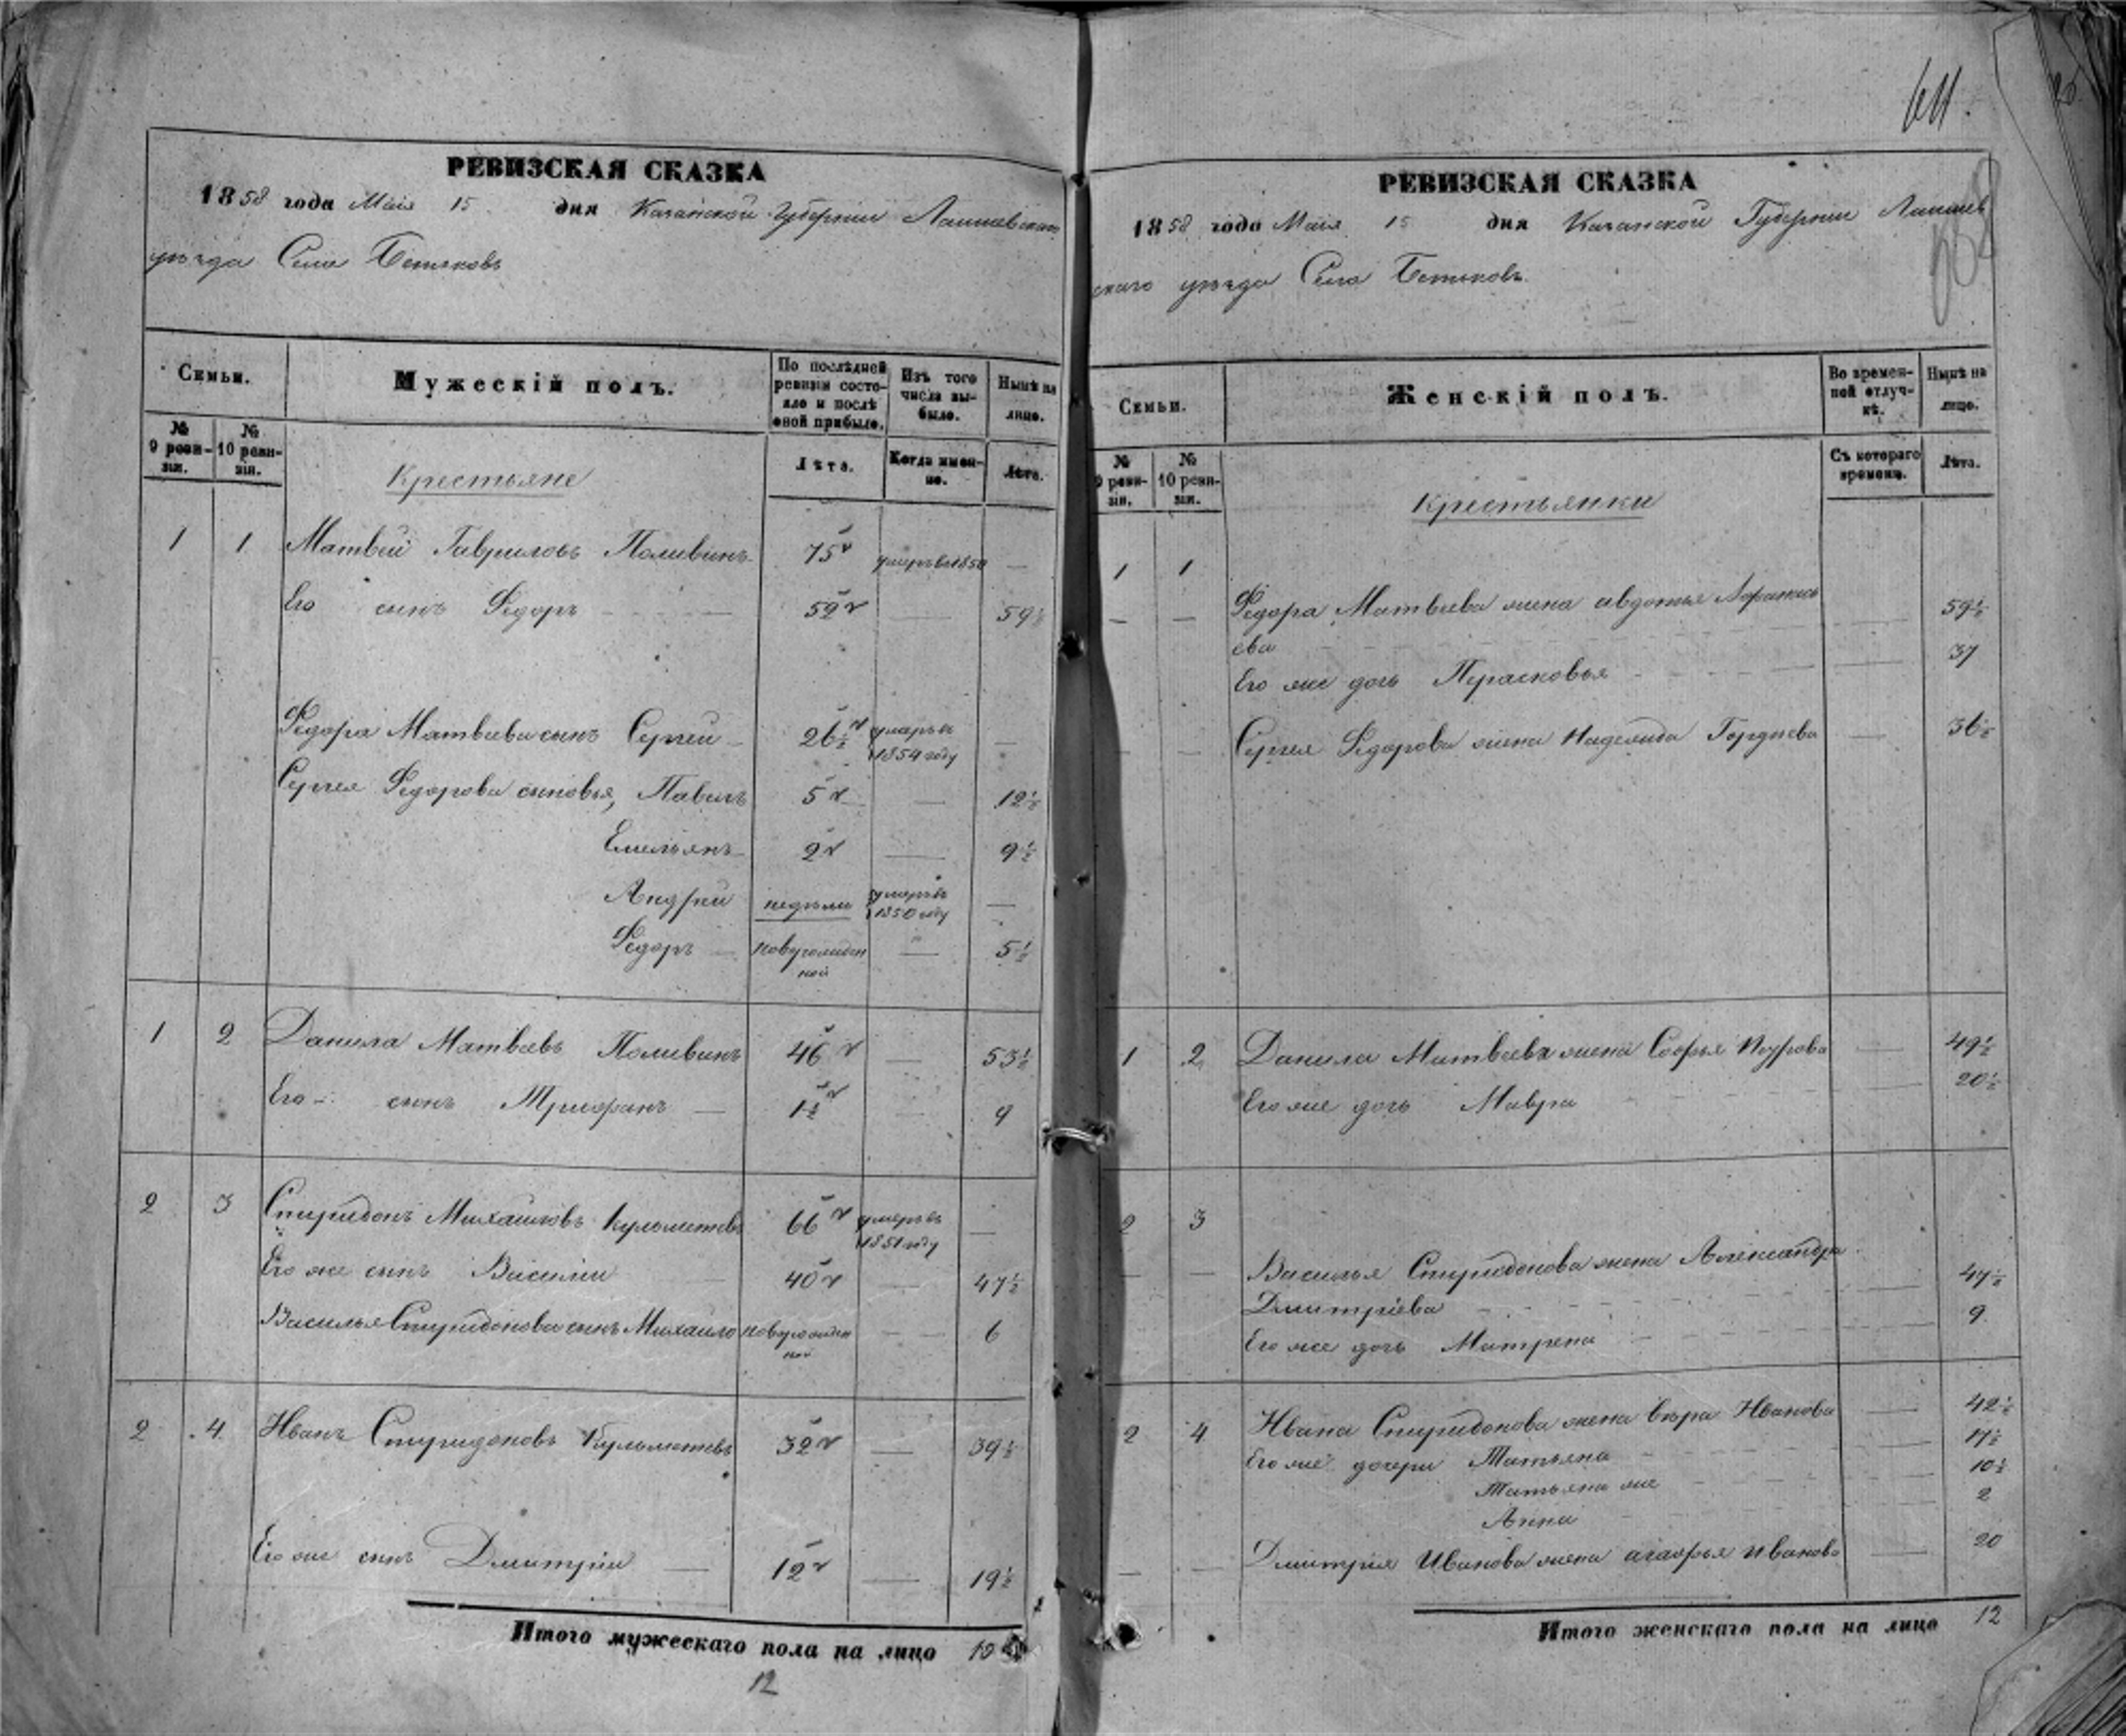 РЕВИЗСКАЯ СКАЗКА
1858 года Маія 15 дня Казанской Губерніи Лаишевскаго
уѣзда Села Бетьковъ
Семьи.
Мужескій полъ.
По послѣдней ревизіи состояло и послѣ оной прибыло.
Изъ того числа выбыло.
Нынѣ на лицо.
№ 9 ревизіи.
№ 10 ревизіи.
Лѣта.
Когда именно.
Лѣта.
Крестьяне
1 1 Матвѣй Гавриловъ Поливинъ 75 умеръ въ 1850 —
Его сынъ Ѳедоръ 52 — 59½
Ѳедора Матвѣева сынъ Сергѣй 26½ умеръ въ 1854 году —
Сергея Ѳедорова сыновья, Павелъ 5 — 12½
Емельянъ 2 — 9½
Андрей недѣли умеръ въ 1850 году —
Ѳедоръ — новурожденной — 5½
1 2 Данила Матвѣевъ Поливинъ 46 — 53½
Его сынъ Трифанъ — 1½ — 9
2 3 Спиридонъ Михайловъ 66 умеръ въ 1851 году —
Его же сынъ Василіи 40 — 47½
Василья Спиридонова сынъ Михайло новурожденной — 6
2 4 Иванъ Спиридоновъ 32 — 39½
Его же сынъ Дмитріи — 12 — 19½
Итого мужескаго пола на лицо 10
12
611.
РЕВИЗСКАЯ СКАЗКА
1858 года Маія 15 дня Казанской Губерніи Лаишев
скаго уѣзда Села Бетьковъ
Семьи.
Женскій полъ.
Во временной отлучкѣ.
Нынѣ на лицо.
№ 9 ревизіи.
№ 10 ревизіи.
Съ котораго времени.
Лѣта.
Крестьянки
1 1
— — Ѳедора Матвѣева жена авдотья Афанась
ева 59½
Его же дочь Прасковья — 37
— — Сергея Ѳедорова жена Надежда Гордѣева — 36½
1 2 Данила Матвѣева жена Софья — 49½
Его же дочь Мавра 20½
2 3
— — Василья Спиридонова жена Александра
Дмитріева 47½
Его же дочь Матрена 9
2 4 Ивана Спиридонова жена вѣра Иванова — 42½
Его же дочери Татьяна 17½
Татьяна же 10½
Анна 2
— — Дмитрія Иванова жена агафья иванова — 20
Итого женскаго пола на лицо 12